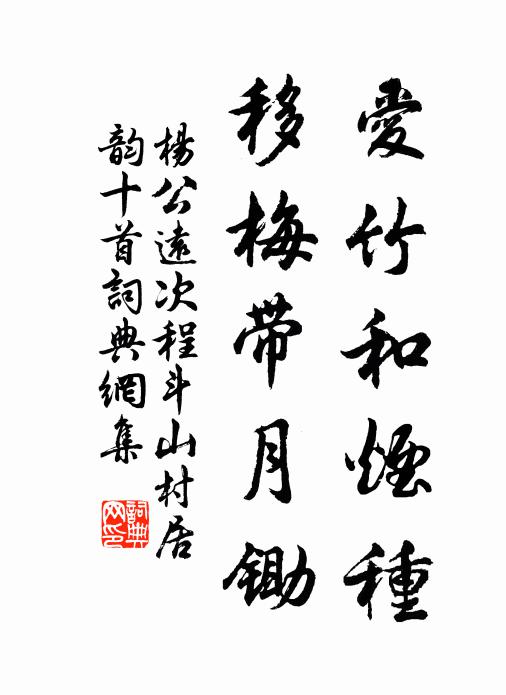 愛竹和煙種
移梅帶月鋤
楊公遠次程斗山村居
韵十首詞典網集
詞典网印